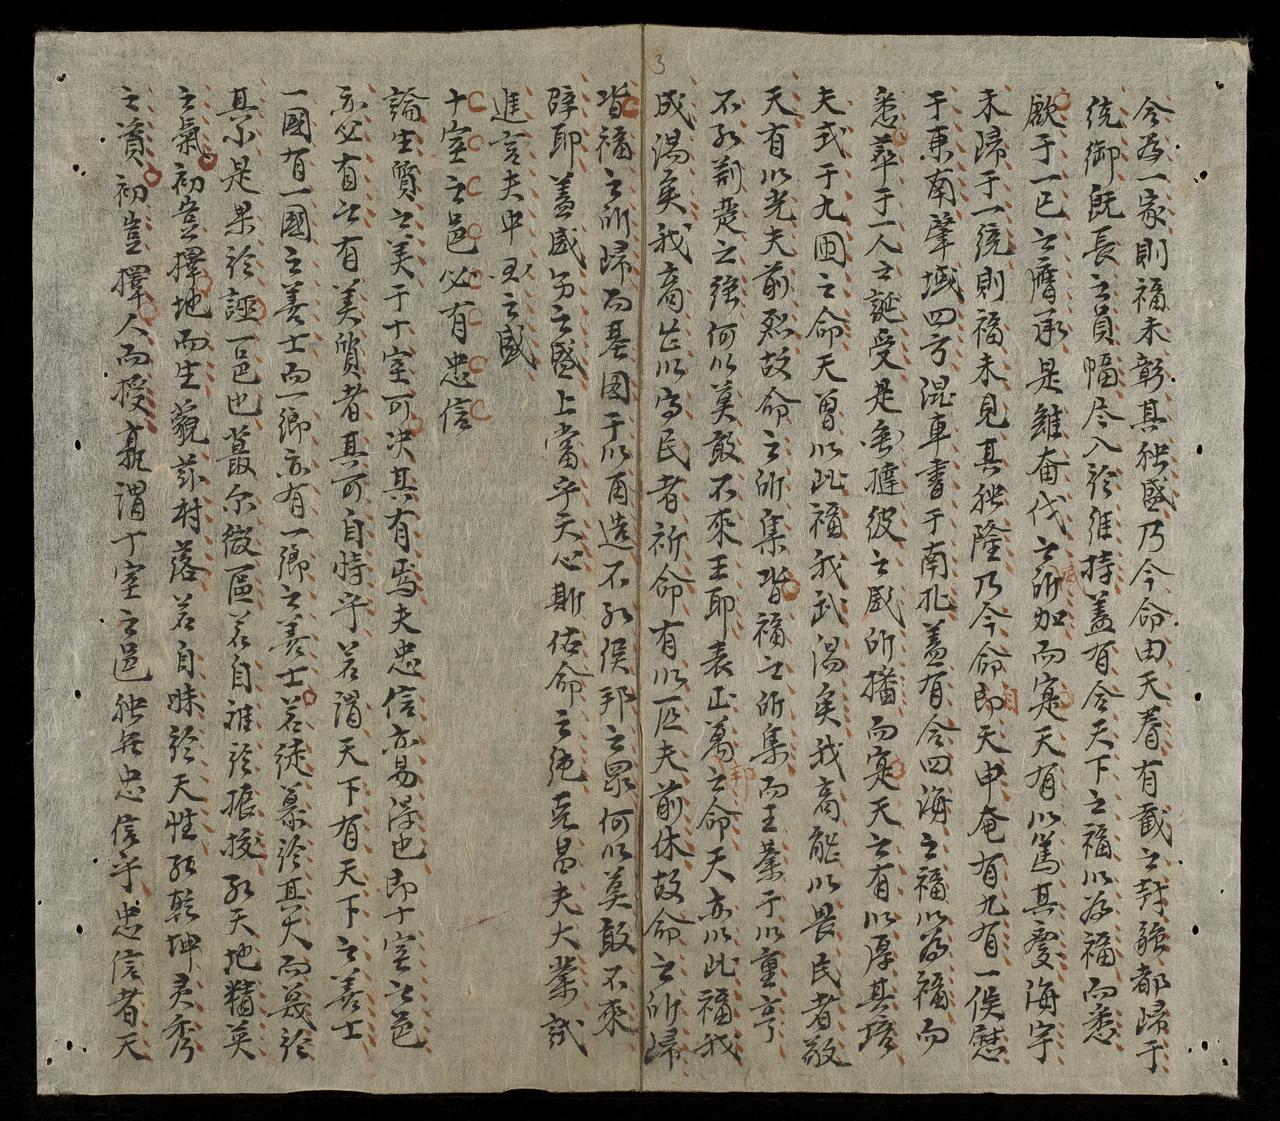 3
今為一家則福未彰其独盛乃今命由天眷有截之封疆都歸于
統御既長之員幅尽入於維持蓋有合天下之福以為福而悉
歐于一已之膺承是雖奮伐之所加而寔天有以篤其愛海宇
未歸于一統則福未見其独隆乃今命即天申奄有九有一侯慰
于東南肇域四方混車書于南北蓋有合四海之福以為福而
悉萃于一人之誕受是雖撻彼之威所播而寔天之有以厚其
夫式于九囲之命天曾以此福我武湯矣我商能以畏民者敬
天有以光夫前烈故命之所集皆福之所集而王業于以重亨
不然荊楚之強何以莫敢不來王耶表正萬之命天亦以此福我
邦
成湯矣我商是以寧民者祈命有以匹夫前休故命之所歸
皆福之所歸而基図于以再造不然侯邦之眾何以莫敢不來
辟耶蓋威力之盛上當乎天心斯佑命之純克昌夫大業試
進言夫中之盛
十室之邑必有忠信
論生質之美于十室可決其有焉夫忠信亦易得也即十室之邑
亦必有之有美質者其可自恃乎若謂天下有天下之善士
一國有一國之善士而一鄉亦有一鄉之善士若徒慕於其大而蔑於
其小是果於誣一邑也蕞尔微區若自雅於振拔然天地精英
之氣初豈擇地而生藐茲村落若自昧於天性然乾坤灵秀
之質初豈擇人而授孰謂十室之邑独無忠信乎忠信者天